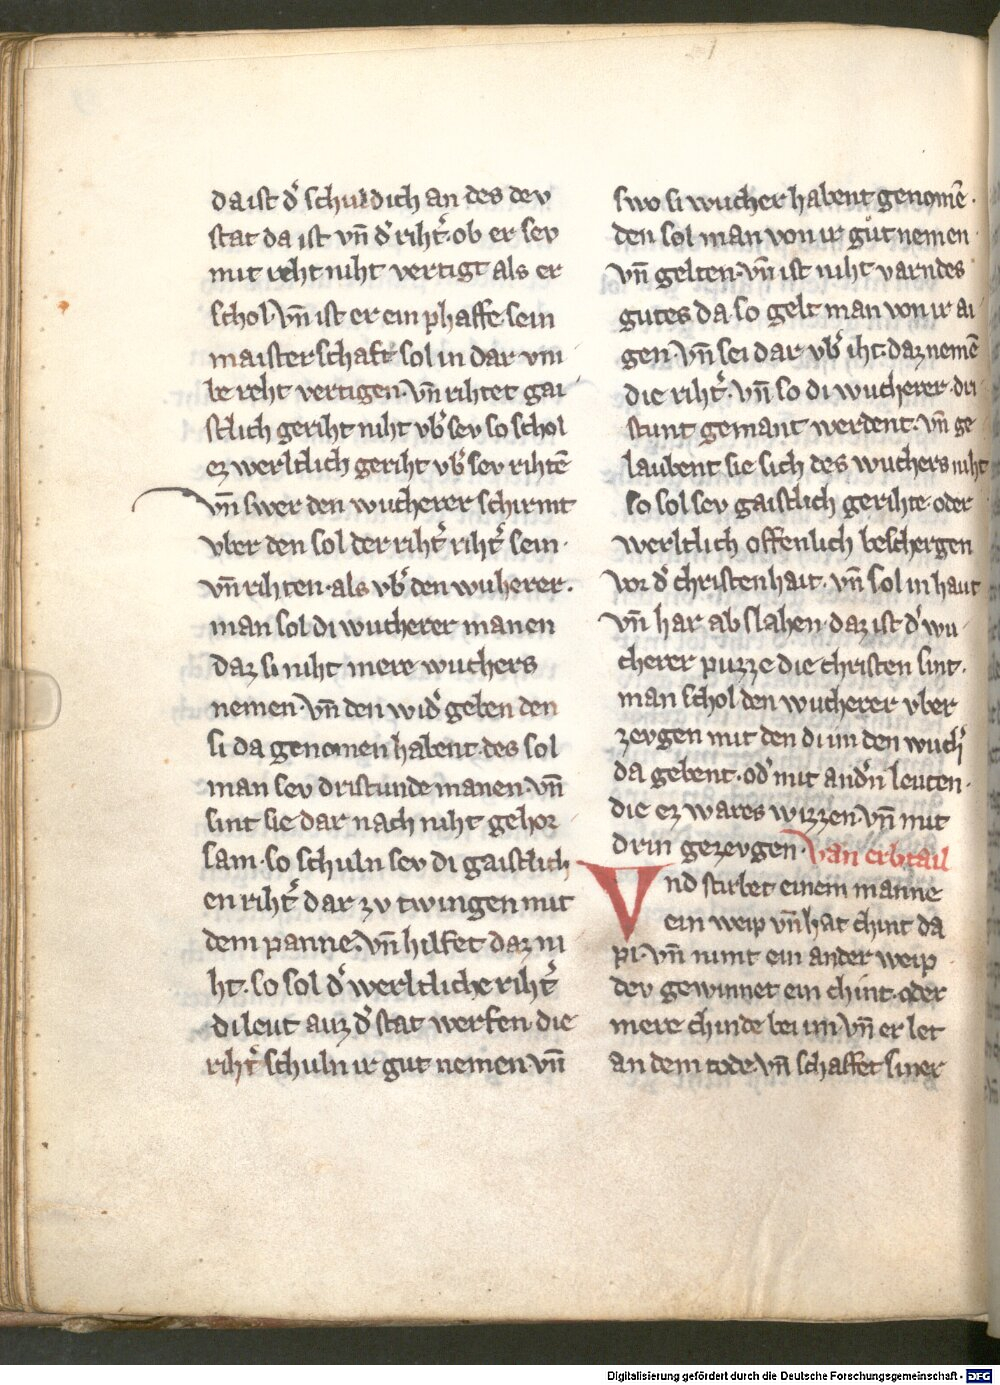 da ist d̾ schuldich an des dev
stat da ist vn̄ d̾ riht̾. ob er sev
mit reht niht vertigt als er
schol. Vn̄ ist er ein phaffe sein
maisterschaft sol in dar vm
be reht vertigen. Vn̄ rihtet gai
stlich geriht niht vb̾ sev so schol
ez werltlich geriht vb̾ sev rihtē
Vn̄ swer den wucherer schirmt
vber den sol der riht̾ riht̾ sein.
vn̄ rihten. als vb̾ den wuherer.
man sol di wucherer manen
daz si niht mere wuchers
nemen. Vn̄ den wid̾ geben den
si da genomen habent. des sol
man sev dristunde manen. Vn̄
sint sie dar nach niht gehor
sam. so schuln sev di gaistlich
en riht̾ dar zv twingen mit
dem panne. Vn̄ hilfet daz ni
ht. so sol d̾ werltliche riht̾
di leut auz d̾ stat werfen. die
riht̾ schuln ir gut nemen. vn̄
swo si wucher habent genomē.
den sol man von ir gůt nemen
Vn̄ gelten. Vn̄ ist niht varndes
gutes da. so gelt man von ir ai
gen. Vn̄ sei dar vb̾ iht. daz nemē
die riht̾. Vn̄ so di wucherer. dri
stunt gemant werdent. Vn̄ ge
laubent sie sich des wuchers niht
so sol sev gaistlich gerihte. oder
werltlich offenlich beschergen
vor d̾ christenhait. Vn̄ sol in haut
Vn̄ har ab slahen. daz ist d̾ wu
cherer puzze die christen sint.
man schol den wucherer vber
zevgen mit den di im den wuch̾
da gebent. od̾ mit and̾n leuten.
die ez wares wizzen. Vn̄ mit
drin gezevgen. Van erbtail
Vnd stirbet einem manne
ein weip vn̄ hat chint da
pi. Vn̄ nimt ein ander weip
dev gewinnet ein chint. oder
mere chinde bei im. Vn̄ er let
an dem tode. Vn̄ schaffet siner
Digitalisierung gefördert durch die Deutsche Forschungsgemeinschaft - DFG